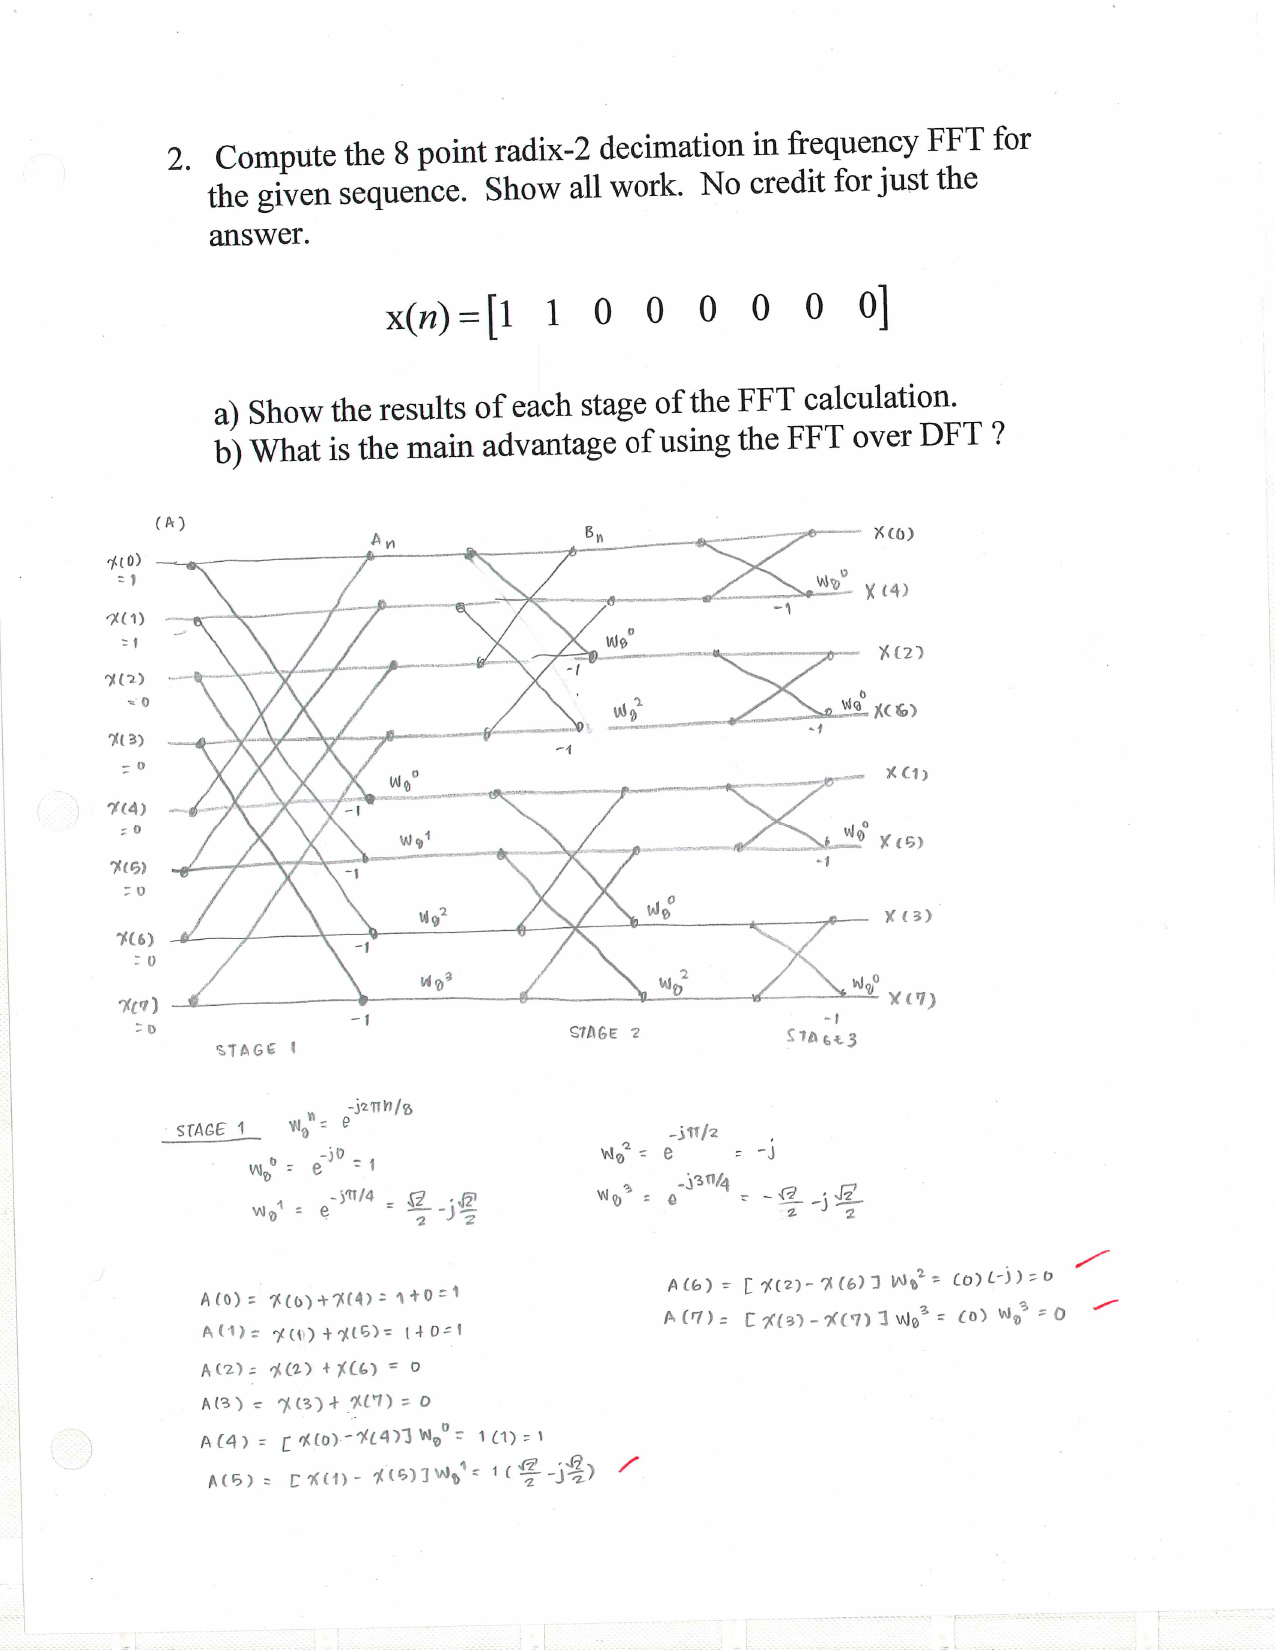 2. Compute the 8 point radix-2 decimation in frequency FFT for
the given sequence. Show all work. No credit for just the
answer.
x(n) = [1 1 0 0 0 0 0 0]
a) Show the results of each stage of the FFT calculation.
b) What is the main advantage of using the FFT over DFT ?
(A)
An
Bn
x(0)
=1
X(0)
W8^0
-1
X(4)
x(1)
=1
W8^0
-1
X(2)
x(2)
=0
W8^2
-1
W8^0
-1
X(6)
x(3)
=0
W8^0
-1
X(1)
x(4)
=0
W8^1
-1
W8^0
-1
X(5)
x(5)
=0
W8^2
-1
W8^0
X(3)
x(6)
=0
W8^3
-1
W8^2
W8^0
-1
X(7)
x(7)
=0
STAGE 1
STAGE 2
STAGE 3
STAGE 1 W8^n = e^-j2πn/8
W8^0 = e^-j0 = 1
W8^1 = e^-jπ/4 = √2/2 - j√2/2
W8^2 = e^-jπ/2 = -j
W8^3 = e^-j3π/4 = -√2/2 - j√2/2
A(0) = x(0)+x(4) = 1+0=1
A(1) = x(1)+x(5) = 1+0=1
A(2) = x(2)+x(6) = 0
A(3) = x(3)+x(7) = 0
A(4) = [x(0)-x(4)] W8^0 = 1(1) = 1
A(5) = [x(1)-x(5)] W8^1 = 1(√2/2 - j√2/2)
A(6) = [x(2)-x(6)] W8^2 = (0)(-j) = 0
A(7) = [x(3)-x(7)] W8^3 = (0) W8^3 = 0